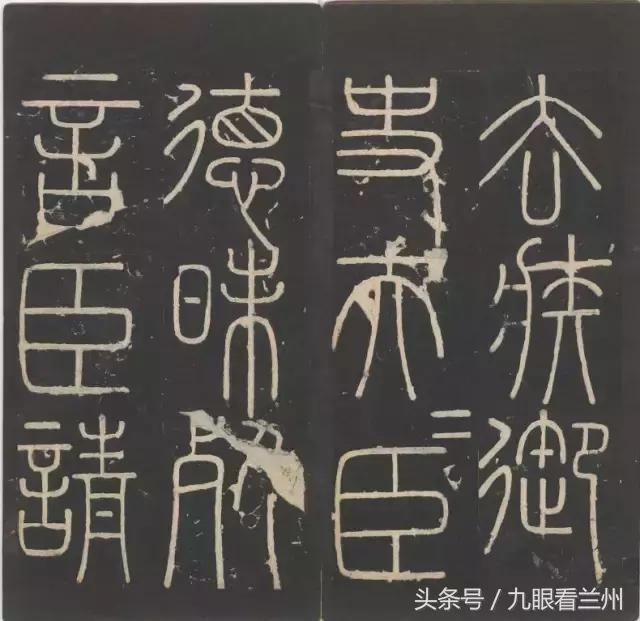 去疾御
史夫=臣
德昧死
言臣請
头条号 / 九眼看兰州